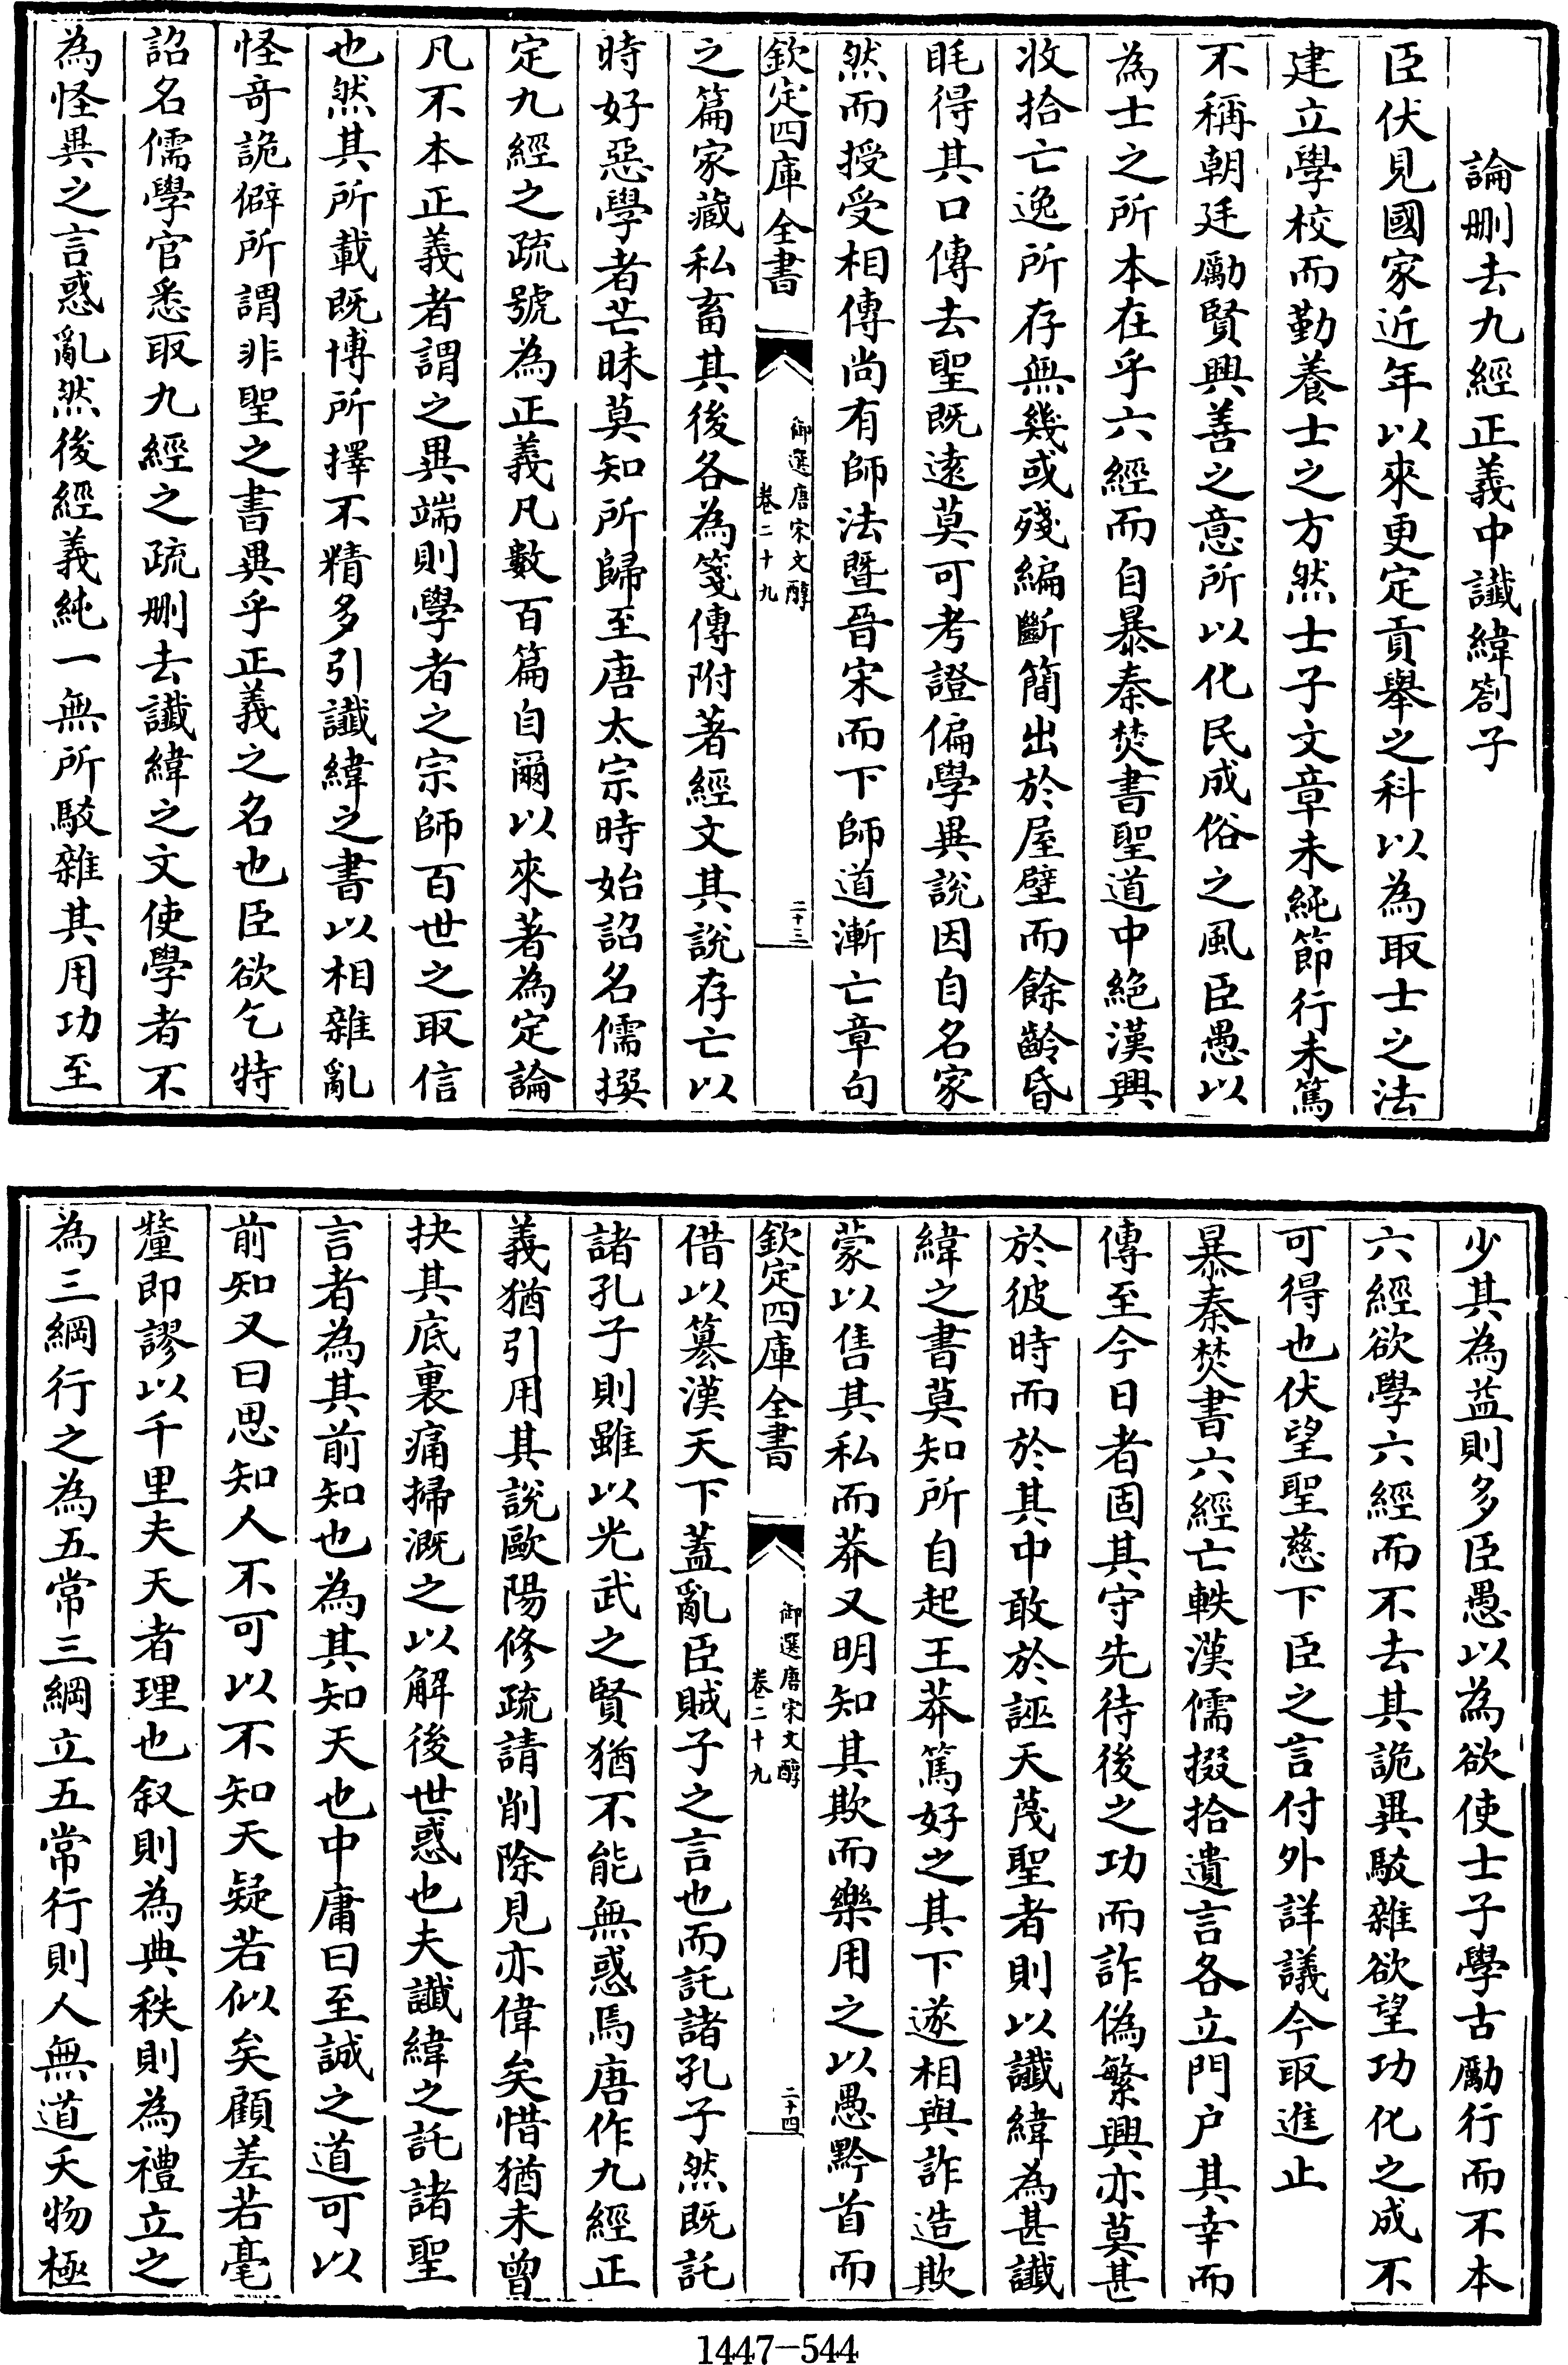 論刪去九經正義中讖緯劄子
臣伏見國家近年以來更定貢舉之科以為取士之法
建立學校而勤養士之方然士子文章未純節行未篤
不稱朝廷勵賢興善之意所以化民成俗之風臣愚以
為士之所本在乎六經而自暴秦焚書聖道中絕漢興
收拾亡逸所存無幾或殘編斷簡出於屋壁而餘齡昏
眊得其口傳去聖既遠莫可考證偏學異說因自名家
然而授受相傳尚有師法暨晉宋而下師道漸亡章句
欽定四庫全書
御選唐宋文醇
卷二十九
二十三
之篇家藏私畜其後各為箋傳附著經文其說存亡以
時好惡學者芒昧莫知所歸至唐太宗時始詔名儒撰
定九經之疏號為正義凡數百篇自爾以來著為定論
凡不本正義者謂之異端則學者之宗師百世之取信
也然其所載既博所擇不精多引讖緯之書以相雜亂
怪奇詭僻所謂非聖之書異乎正義之名也臣欲乞特
詔名儒學官悉取九經之疏刪去讖緯之文使學者不
為怪異之言惑亂然後經義純一無所駁雜其用功至
少其為益則多臣愚以為欲使士子學古勵行而不本
六經欲學六經而不去其詭異駁雜欲望功化之成不
可得也伏望聖慈下臣之言付外詳議今取進止
暴秦焚書六經亡軼漢儒掇拾遺言各立門户其幸而
傳至今日者固其守先待後之功而詐偽繁興亦莫甚
於彼時而於其中敢於誣天蔑聖者則以讖緯為甚讖
緯之書莫知所自起王莽篤好之其下遂相與詐造欺
蒙以售其私而莽又明知其欺而樂用之以愚黔首而
欽定四庫全書
御選唐宋文醇
卷二十九
二十四
借以簒漢天下蓋亂臣賊子之言也而託諸孔子然既託
諸孔子則雖以光武之賢猶不能無惑焉唐作九經正
義猶引用其說歐陽修疏請削除見亦偉矣惜猶未曾
抉其底裏痛掃溉之以解後世惑也夫讖緯之託諸聖
言者為其前知也為其知天也中庸曰至誠之道可以
前知又曰思知人不可以不知天疑若似矣顧差若毫
釐即謬以千里夫天者理也叙則為典秩則為禮立之
為三綱行之為五常三綱立五常行則人無道夭物極
1447-544